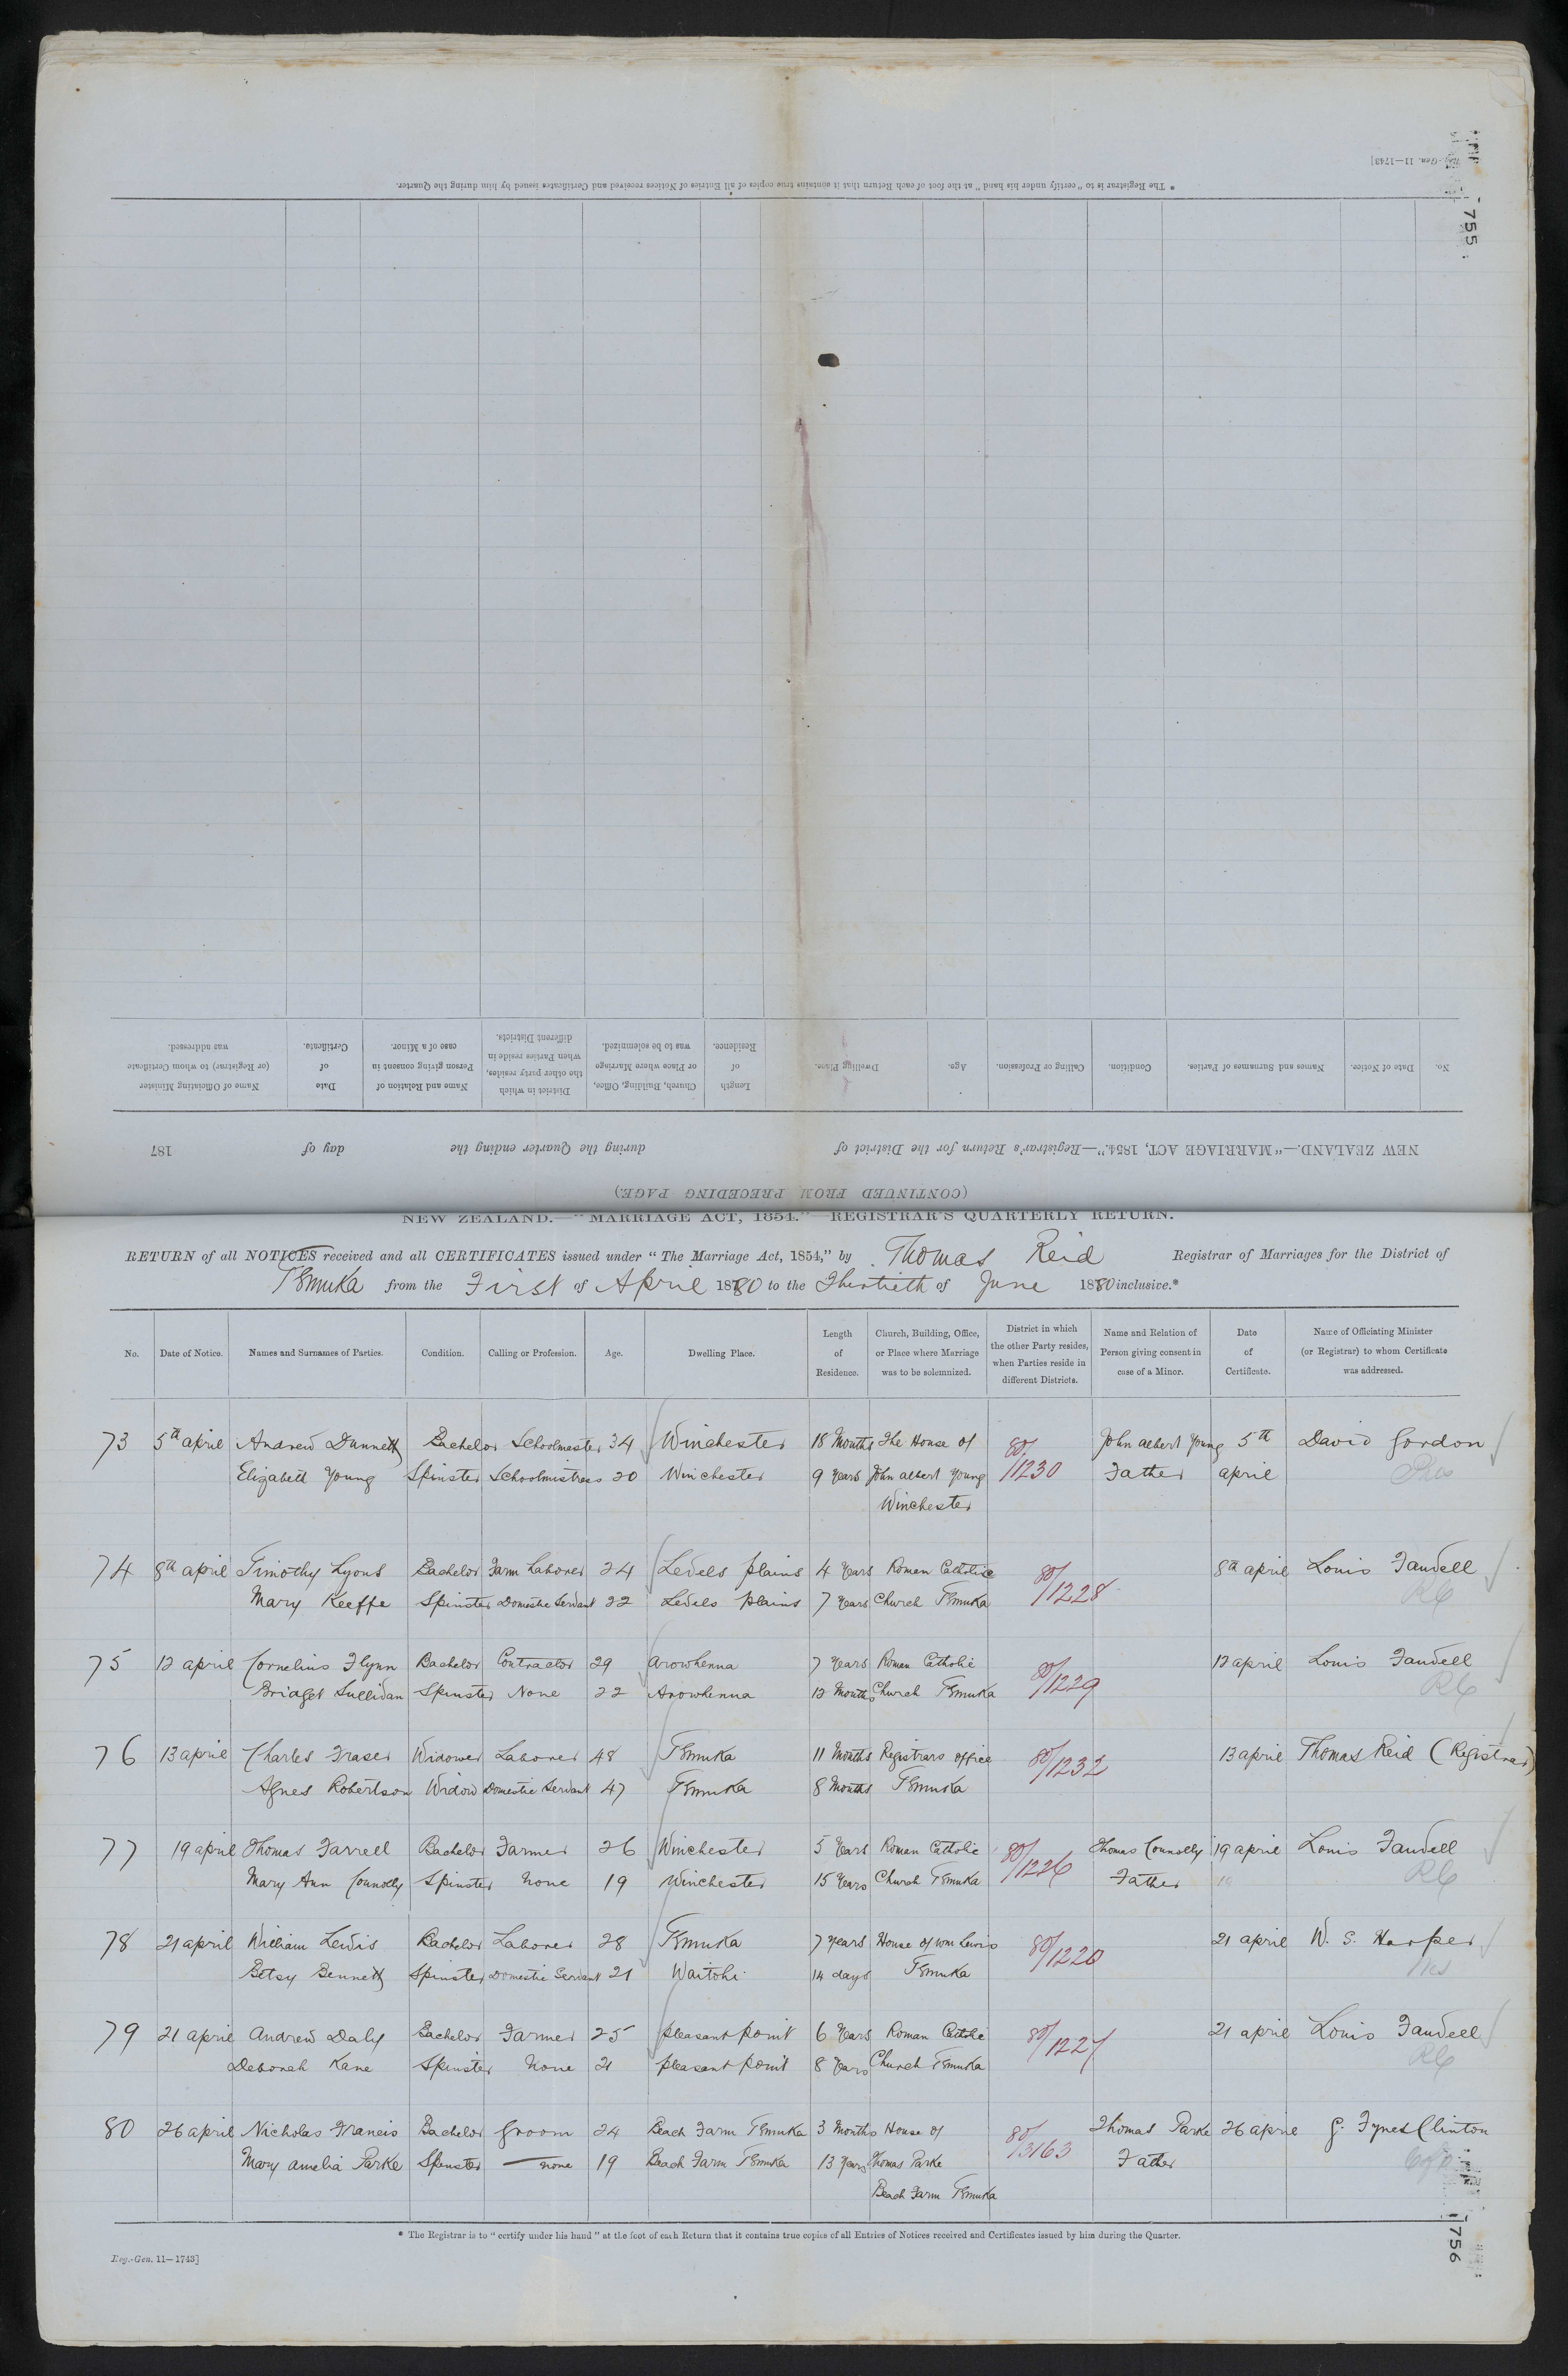 Reg.-Gen. 11—1743]
755
* The Registrar is to "certify under his hand" at the foot of each Return that it contains true copies of all Entries of Notices received and Certificates issued by him during the Quarter.
(CONTINUED FROM PRECEDING PAGE.)
NEW ZEALAND.—"MARRIAGE ACT, 1854."—Registrar's Return for the District of during the Quarter ending the day of 187
No. Date of Notice. Names and Surnames of Parties. Condition. Calling or Profession. Age. Dwelling Place. Length of Residence. Church, Building, Office, or Place where Marriage was to be solemnized. District in which the other party resides, when Parties reside in different Districts. Name and Relation of Person giving consent in case of a Minor. Date of Certificate. Name of Officiating Minister (or Registrar) to whom Certificate was addressed.
NEW ZEALAND.—"MARRIAGE ACT, 1854."—REGISTRAR'S QUARTERLY RETURN.
RETURN of all NOTICES received and all CERTIFICATES issued under "The Marriage Act, 1854," by Thomas Reid Registrar of Marriages for the District of
Temuka from the First of April 1880 to the Thirtieth of June 1880 inclusive.*
No. Date of Notice. Names and Surnames of Parties. Condition. Calling or Profession. Age. Dwelling Place. Length of Residence. Church, Building, Office, or Place where Marriage was to be solemnized. District in which the other Party resides, when Parties reside in different Districts. Name and Relation of Person giving consent in case of a Minor. Date of Certificate. Name of Officiating Minister (or Registrar) to whom Certificate was addressed.
73 5th april Andrew Dunnett Bachelor Schoolmaster 34 Winchester 18 Months The House of 80/1230 John albert Young 5th David Gordon
Elizabeth Young Spinster Schoolmistress 20 Winchester 9 Years John albert Young Father april Pres
Winchester
74 8th april Timothy Lyons Bachelor Farm Laborer 24 Levels plains 4 Years Roman Catholic 80/1228 8th april Louis Fauvell
Mary Keeffe Spinster Domestic Servant 22 Levels plains 7 Years Church Temuka RC
75 12 april Cornelius Flynn Bachelor Contractor 29 arowhenna 7 Years Roman Catholic 80/1229 12 april Louis Fauvell
Bridget Sullivan Spinster None 22 Arowhenna 12 Months Church Temuka RC
76 13 april Charles Fraser Widower Laborer 48 Temuka 11 Months Registrars office 80/1232 13 april Thomas Reid (Registrar)
Agnes Robertson Widow Domestic Servant 47 Temuka 8 Months Temuka
77 19 april Thomas Farrell Bachelor Farmer 26 Winchester 5 Years Roman Catholic 80/1226 Thomas Connolly 19 april Louis Fauvell
Mary Ann Connolly Spinster None 19 Winchester 15 Years Church Temuka Father 19 RC
78 21 april William Lewis Bachelor Laborer 28 Temuka 7 Years House of Wm Lewis 80/1220 21 april W. S. Harper
Betsy Bennett Spinster Domestic Servant 21 Waitohi 14 days Temuka
79 21 april Andrew Daly Bachelor Farmer 25 pleasant point 6 Years Roman Catholic 80/1227 21 april Louis Fauvell
Deborah Kane Spinster None 21 pleasant point 8 Years Church Temuka RC
80 26 april Nicholas Francis Bachelor Groom 24 Beach Farm Temuka 3 Months House of 80/3163 Thomas Parke 26 april G. Fynes Clinton
Mary amelia Parke Spinster none 19 Beach Farm Temuka 13 Years Thomas Parke Father CofE
Beach Farm Temuka
* The Registrar is to "certify under his hand" at the foot of each Return that it contains true copies of all Entries of Notices received and Certificates issued by him during the Quarter.
Reg.-Gen. 11—1743]
756